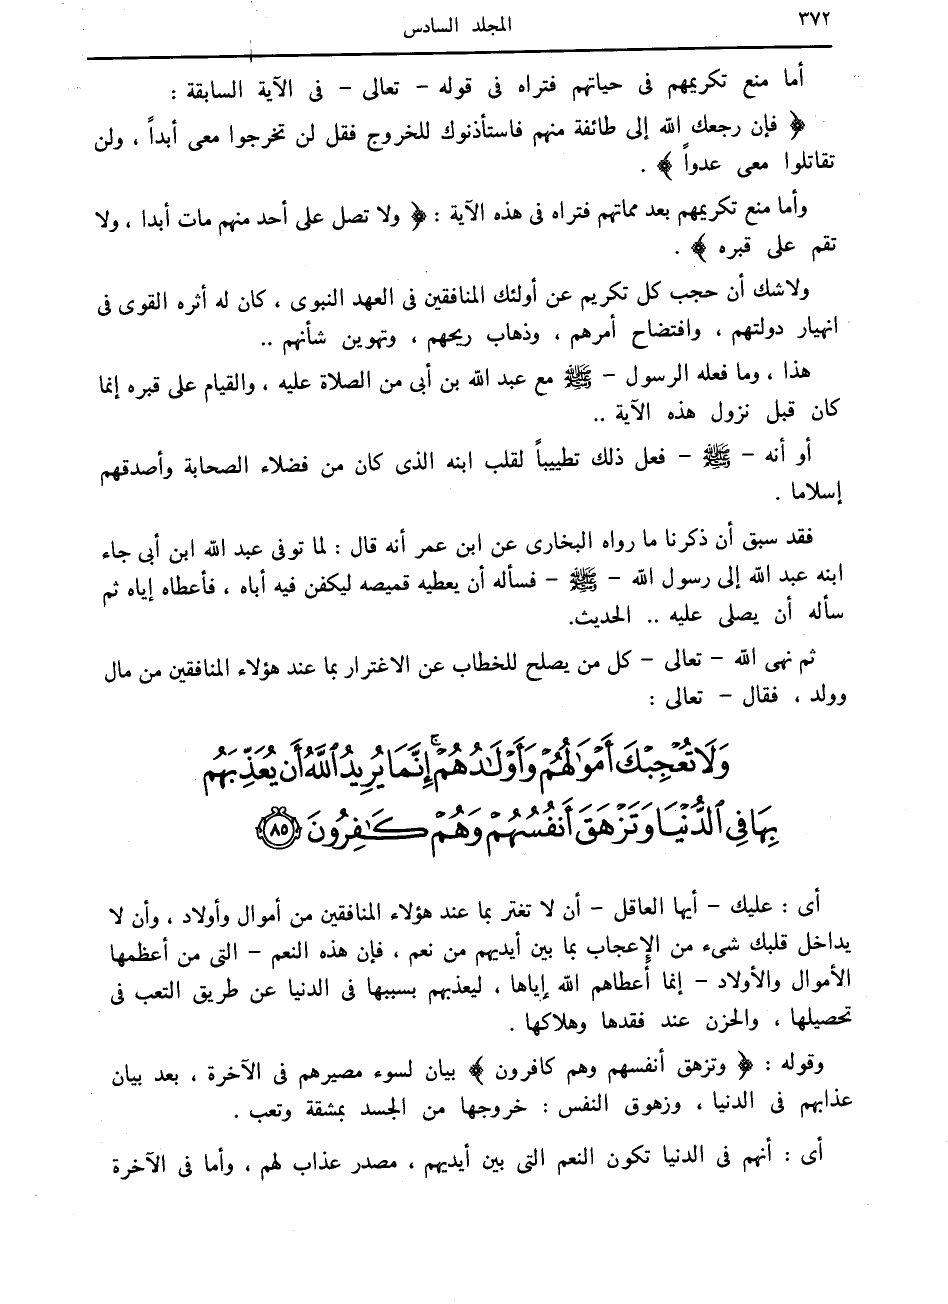 ٣٧٢
المجلد السادس
أما منع تكريمهم فى حياتهم فتراه فى قوله – تعالى – فى الآية السابقة :
﴿ فإن رجعك الله إلى طائفة منهم فاستأذنوك للخروج فقل لن تخرجوا معى أبداً ، ولن
تقاتلوا معى عدواً ﴾ .
وأما منع تكريمهم بعد مماتهم فتراه فى هذه الآية : ﴿ ولا تصل على أحد منهم مات أبدا ، ولا
تقم على قبره ﴾ .
ولاشك أن حجب كل تكريم عن أولئك المنافقين فى العهد النبوى ، كان له أثره القوى فى
انهيار دولتهم ، وافتضاح أمرهم ، وذهاب ريحهم ، وتهوين شأنهم ..
هذا ، وما فعله الرسول – ﷺ مع عبد الله بن أبى من الصلاة عليه ، والقيام على قبره إنما
كان قبل نزول هذه الآية ..
أو أنه – ﷺ – فعل ذلك تطييباً لقلب ابنه الذى كان من فضلاء الصحابة وأصدقهم
إسلاما .
فقد سبق أن ذكرنا ما رواه البخارى عن ابن عمر أنه قال : لما توفى عبد الله ابن أبى جاء
ابنه عبد الله إلى رسول الله – ﷺ – فسأله أن يعطيه قميصه ليكفن فيه أباه ، فأعطاه إياه ثم
سأله أن يصلى عليه .. الحديث.
ثم نهى الله – تعالى – كل من يصلح للخطاب عن الاغترار بما عند هؤلاء المنافقين من مال
وولد ، فقال – تعالى :
وَلَا تُعْجِبْكَ أَمْوَٰلُهُمْ وَأَوْلَٰدُهُمْ ۚ إِنَّمَا يُرِيدُ ٱللَّهُ أَن يُعَذِّبَهُم
بِهَا فِى ٱلدُّنْيَا وَتَزْهَقَ أَنفُسُهُمْ وَهُمْ كَٰفِرُونَ ﴿٨٥﴾
أى : عليك – أيها العاقل – أن لا تغتر بما عند هؤلاء المنافقين من أموال وأولاد ، وأن لا
يداخل قلبك شىء من الإعجاب بما بين أيديهم من نعم ، فإن هذه النعم – التى من أعظمها
الأموال والأولاد – إنما أعطاهم الله إياها ، ليعذبهم بسببها فى الدنيا عن طريق التعب فى
تحصيلها ، والحزن عند فقدها وهلاكها .
وقوله : ﴿ وتزهق أنفسهم وهم كافرون ﴾ بيان لسوء مصيرهم فى الآخرة ، بعد بيان
عذابهم فى الدنيا ، وزهوق النفس : خروجها من الجسد بمشقة وتعب .
أى : أنهم فى الدنيا تكون النعم التى بين أيديهم ، مصدر عذاب لهم ، وأما فى الآخرة